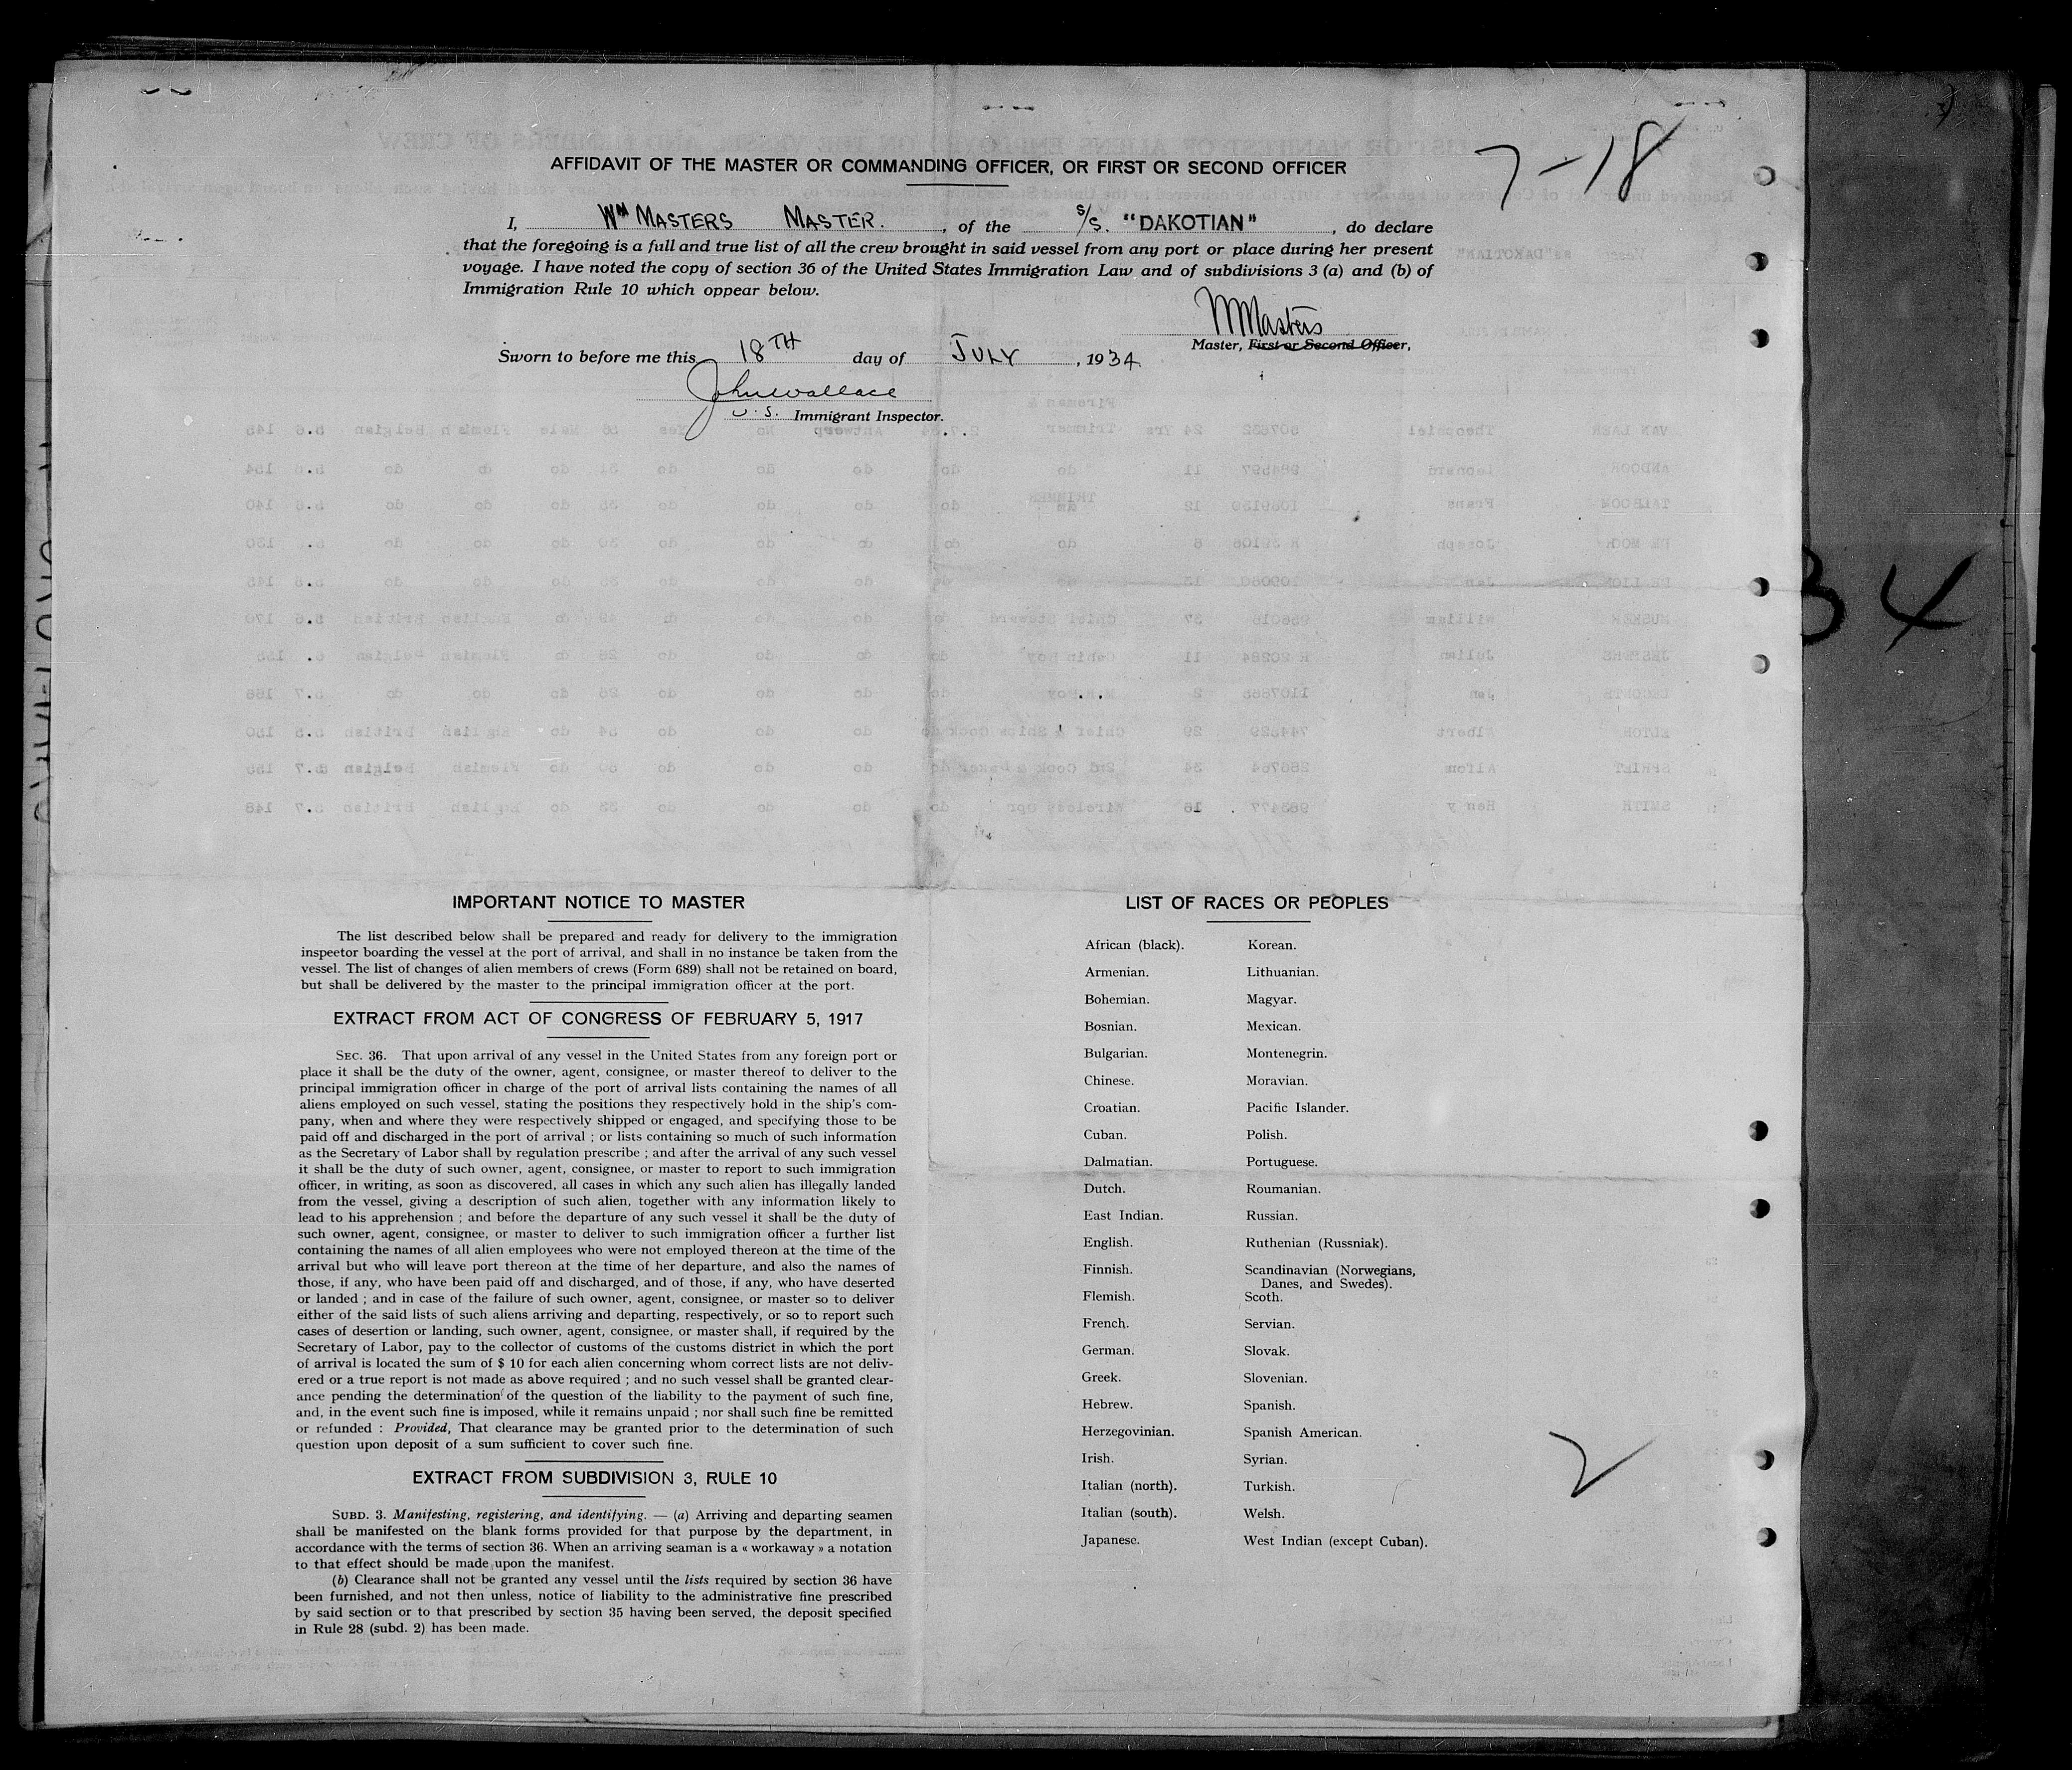 7-18
AFFIDAVIT OF THE MASTER OR COMMANDING OFFICER, OR FIRST OR SECOND OFFICER
I, Wm MASTERS MASTER. , of the S/S. "DAKOTIAN" , do declare
that the foregoing is a full and true list of all the crew brought in said vessel from any port or place during her present
voyage. I have noted the copy of section 36 of the United States Immigration Law and of subdivisions 3 (a) and (b) of
Immigration Rule 10 which oppear below.
WMasters
Master, First or Second Officer,
Sworn to before me this 18TH day of JULY , 1934
John Wallace
U.S. Immigrant Inspector.
34
IMPORTANT NOTICE TO MASTER
The list described below shall be prepared and ready for delivery to the immigration
inspeetor boarding the vessel at the port of arrival, and shall in no instance be taken from the
vessel. The list of changes of alien members of crews (Form 689) shall not be retained on board,
but shall be delivered by the master to the principal immigration officer at the port.
EXTRACT FROM ACT OF CONGRESS OF FEBRUARY 5, 1917
SEC. 36. That upon arrival of any vessel in the United States from any foreign port or
place it shall be the duty of the owner, agent, consignee, or master thereof to deliver to the
principal immigration officer in charge of the port of arrival lists containing the names of all
aliens employed on such vessel, stating the positions they respectively hold in the ship's com-
pany, when and where they were respectively shipped or engaged, and specifying those to be
paid off and discharged in the port of arrival ; or lists containing so much of such information
as the Secretary of Labor shall by regulation prescribe ; and after the arrival of any such vessel
it shall be the duty of such owner, agent, consignee, or master to report to such immigration
officer, in writing, as soon as discovered, all cases in which any such alien has illegally landed
from the vessel, giving a description of such alien, together with any information likely to
lead to his apprehension ; and before the departure of any such vessel it shall be the duty of
such owner, agent, consignee, or master to deliver to such immigration officer a further list
containing the names of all alien employees who were not employed thereon at the time of the
arrival but who will leave port thereon at the time of her departure, and also the names of
those, if any, who have been paid off and discharged, and of those, if any, who have deserted
or landed ; and in case of the failure of such owner, agent, consignee, or master so to deliver
either of the said lists of such aliens arriving and departing, respectively, or so to report such
cases of desertion or landing, such owner, agent, consignee, or master shall, if required by the
Secretary of Labor, pay to the collector of customs of the customs district in which the port
of arrival is located the sum of $ 10 for each alien concerning whom correct lists are not deliv-
ered or a true report is not made as above required ; and no such vessel shall be granted clear-
ance pending the determination of the question of the liability to the payment of such fine,
and, in the event such fine is imposed, while it remains unpaid ; nor shall such fine be remitted
or refunded : Provided, That clearance may be granted prior to the determination of such
question upon deposit of a sum sufficient to cover such fine.
EXTRACT FROM SUBDIVISION 3, RULE 10
SUBD. 3. Manifesting, registering, and identifying. — (a) Arriving and departing seamen
shall be manifested on the blank forms provided for that purpose by the department, in
accordance with the terms of section 36. When an arriving seaman is a « workaway » a notation
to that effect should be made upon the manifest.
(b) Clearance shall not be granted any vessel until the lists required by section 36 have
been furnished, and not then unless, notice of liability to the administrative fine prescribed
by said section or to that prescribed by section 35 having been served, the deposit specified
in Rule 28 (subd. 2) has been made.
LIST OF RACES OR PEOPLES
African (black). Korean.
Armenian. Lithuanian.
Bohemian. Magyar.
Bosnian. Mexican.
Bulgarian. Montenegrin.
Chinese. Moravian.
Croatian. Pacific Islander.
Cuban. Polish.
Dalmatian. Portuguese.
Dutch. Roumanian.
East Indian. Russian.
English. Ruthenian (Russniak).
Finnish. Scandinavian (Norwegians,
Danes, and Swedes).
Flemish. Scoth.
French. Servian.
German. Slovak.
Greek. Slovenian.
Hebrew. Spanish.
Herzegovinian. Spanish American.
Irish. Syrian.
Italian (north). Turkish.
Italian (south). Welsh.
Japanese. West Indian (except Cuban).
2